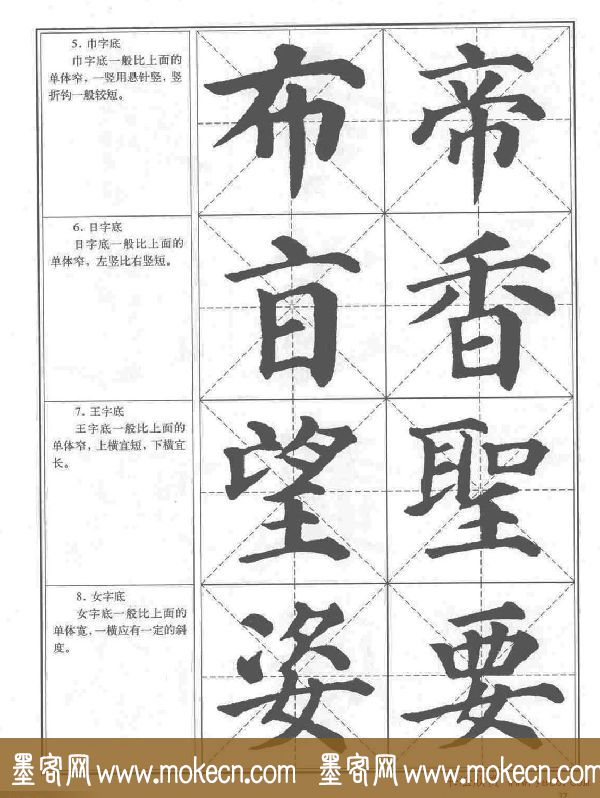 5. 巾字底
巾字底一般比上面的
单体窄，一竖用悬针竖，竖
折钩一般较短。
布 帝
6. 日字底
日字底一般比上面的
单体窄，左竖比右竖短。
盲 香
7. 王字底
王字底一般比上面的
单体窄，上横宜短，下横宜
长。
望 聖
8. 女字底
女字底一般比上面的
单体宽，一横应有一定的斜
度。
姿 要
墨客网 www.mokecn.com 墨客网 www.mokecn.com
37